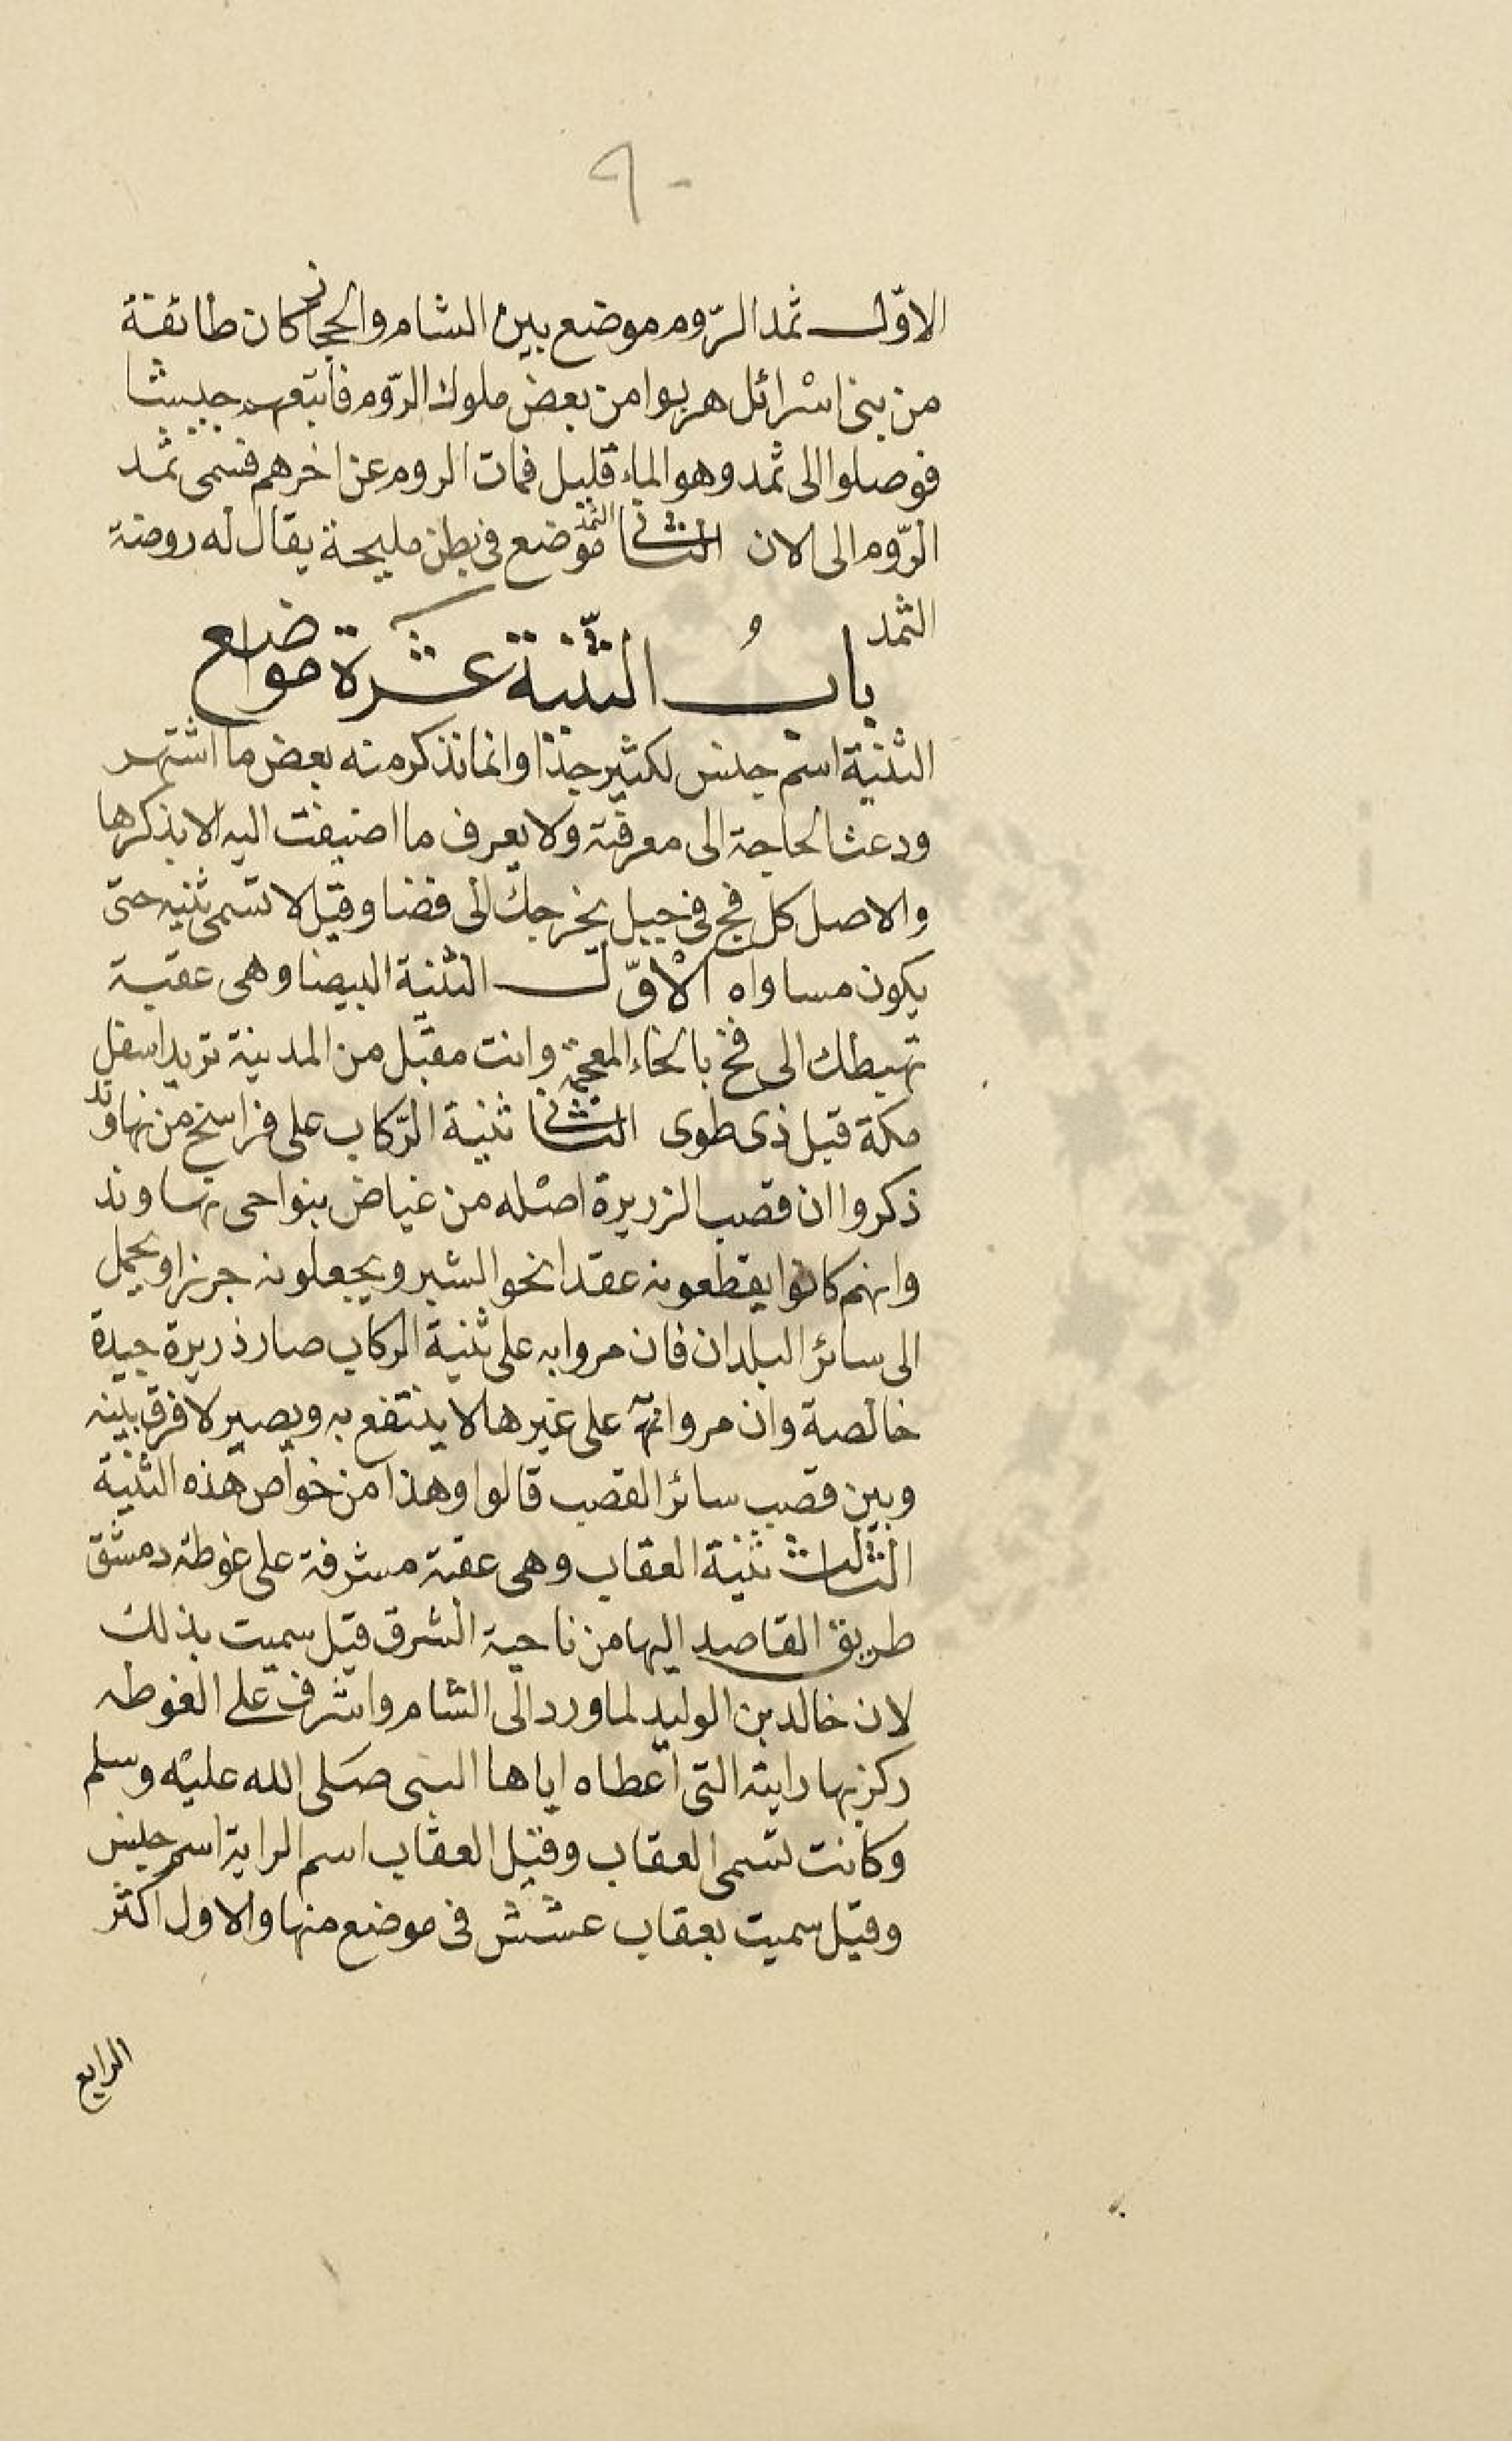 ٩٠
الاوّل ثمد الرّوم موضع بين الشام والحجاز كان طائفة
من بنى اسْرائل هربوا من بعض ملوك الرّوم فأتبعهم جيشا
فوصلوا الى ثمد وهو الماء قليل فمات الروم عن اخرهم فسمى ثمد
الرّوم الى الان الثانى الثمد موضع فى بطن مليحة يقال له روضة
الثمد
بابُ الثّنية عشرة مواضع
الثنية اسم جنس لكثير جدا وانما نذكر منه بعض ما اشتهر
ودعت الحاجة الى معرفته ولا يعرف ما اضيفت اليه الا بذكرها
والاصل كل فج فى جبل يخرجك الى فضا وقيل لا تسمى ثنيه حتى
يكون مساواه الأوّل الثنية البيضا وهى عقبة
تهبطك الى فخ بالخاء المعجمة وانت مقبل من المدينة تريد اسفل
مكة قبل ذى طوى الثانى ثنية الرّكاب على فراسخ من نهاوند
ذكروا ان قصب الزريرة اصْله من غياض بنواحى نهاوند
وانهم كانوا يقطعونه عقدا نحو الشبر ويجعلونه جرزا ويحمل
الى سائر البلدان فان مروا به على ثنية الركاب صار ذريرة جيدة
خالصة وان مروا به على غيرها لا ينتفع به ويصير لا فرق بينه
وبين قصب سائر القصب قالوا وهذا من خواص هذه الثنية
الثالث ثنية العقاب وهى عقبة مشرفة على غوطة دمشق
طريق القاصد اليها من ناحية الشرق قيل سميت بذلك
لان خالد بن الوليد لما ورد الى الشام واشرف على الغوطه
ركز بها رايته التى اعطاه اياها النبى صلى الله عليْه وسلم
وكانت تسمى العقاب وقيل العقاب اسم الراية اسم جنس
وقيل سميت بعقاب عشش فى موضع منها والاول اكثر
الرابع